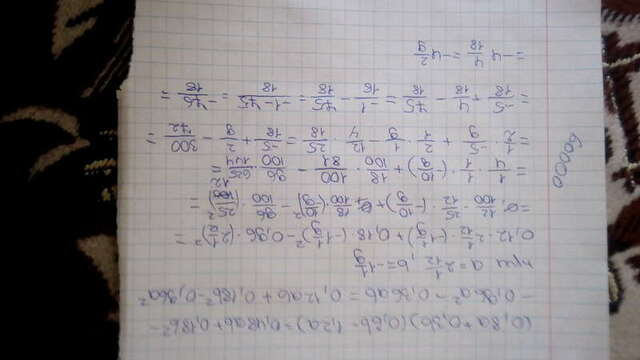 (0,8a+0,3b)(0,6b-1,2a)=0,48ab+0,18b²-
-0,96a²-0,36ab=0,12ab+0,18b²-0,96a²
при a=2 1/12, b=-1 1/9
0,12·2 1/12·(-1 1/9)+0,18·(-1 1/9)²-0,96·(2 1/12)²=
=12/100·25/12·(-10/9)+18/100·(10/9)²-96/100·(25/12)²=
=1/4·1/1·(-10/9)+18/100·100/81-96/100·625/144=
=1/2·-5/9+2/1·1/9-12/4·25/18=-5/18+2/9-300/72=
=-5/18+4/18-75/18=-1/18-75/18=-1-75/18=-76/18=
=-4 4/18=-4 2/9